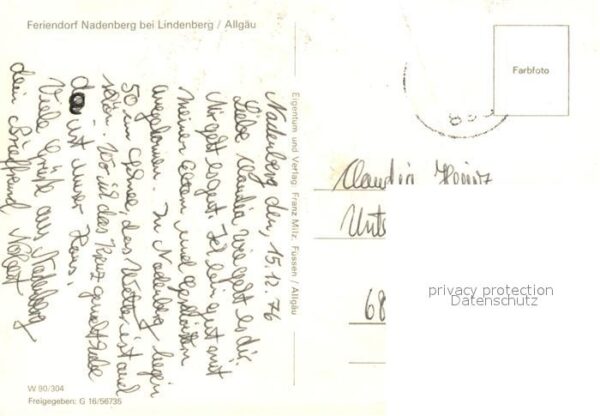 Feriendorf Nadenberg bei Lindenberg / Allgäu
Nadenberg den, 15.12.76
Liebe Claudia wie geht es dir
Mir geht es gut. Ich bin mit
meinen Eltern und Geschwistern
angekommen. In Nadenberg liegen
50 cm Schnee, das Wetter ist auch
schön. Wo ich das Kreuz gemacht habe
da ist unser Haus.
Viele Grüße aus Nadenberg
dein Brieffreund Norbert
W 90/304
Freigegeben: G 16/56735
Eigentum und Verlag: Franz Milz, Füssen / Allgäu
Farbfoto
Claudia Heinz
Unts
68
privacy protection
Datenschutz